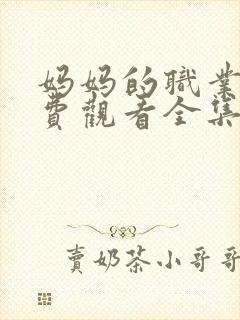 妈妈的職業
費觀看全集
賣奶茶小哥哥